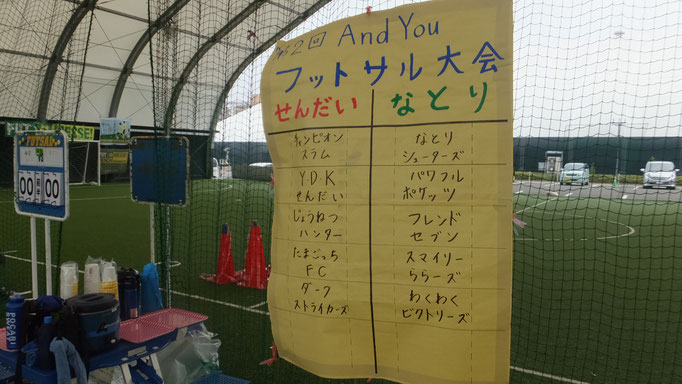 第2回 And You
フットサル大会
せんだい
なとり
チャンピオン
スラム
YDK
せんだい
じょうねつ
ハンター
たまごっち
FC
ダーク
ストライカーズ
なとり
シューターズ
パワフル
ポケッツ
フレンド
セブン
スマイリー
ららーず
わくわく
ビクトリーズ
FUTSAL
00 00
POCARI